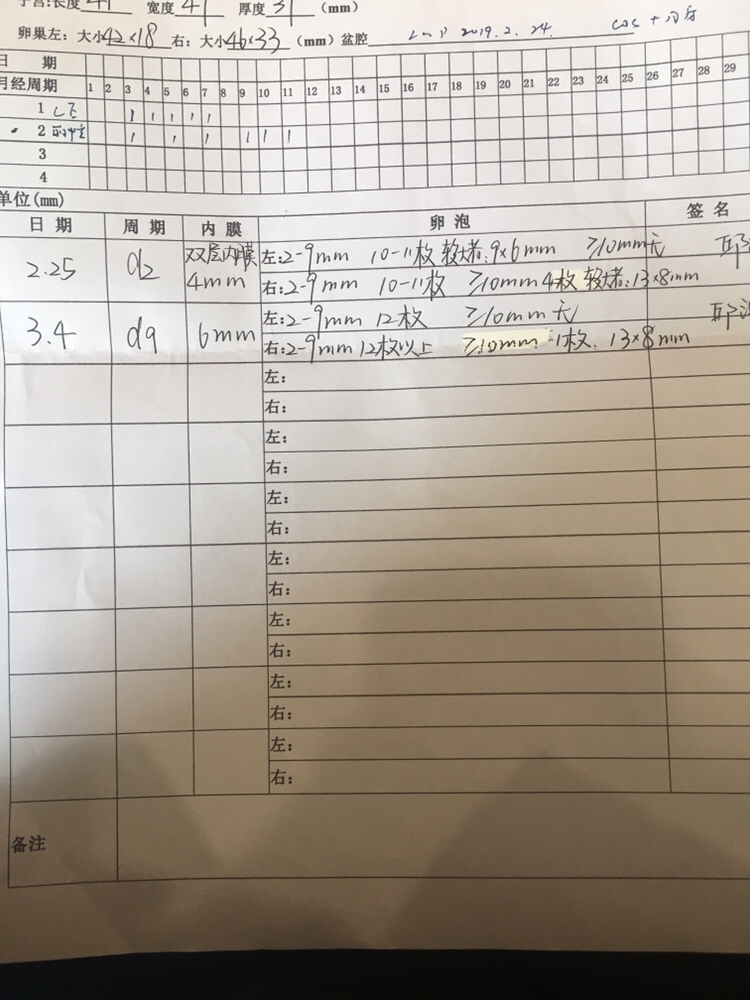 子宫:长度 41 宽度 41 厚度 31 (mm)
卵巢左: 大小42×18 右: 大小46×33 (mm) 盆腔 2019.2.24. cos +
日 期
月经周期 1 2 3 4 5 6 7 8 9 10 11 12 13 14 15 16 17 18 19 20 21 22 23 24 25 26 27 28 29
1
2
3
4
单位(mm)
日期 周期 内膜 卵泡 签名
2.25 d2 双层内膜 4mm 左:2-9mm 10-11枚 较大者:9×6mm ≥10mm无
右:2-9mm 10-11枚 ≥10mm4枚 较大者:13×8mm
3.4 d9 6mm 左:2-9mm 12枚 ≥10mm无
右:2-9mm 12枚以上 ≥10mm 1枚. 13×8mm
左:
右:
左:
右:
左:
右:
左:
右:
左:
右:
左:
右:
左:
右:
备注